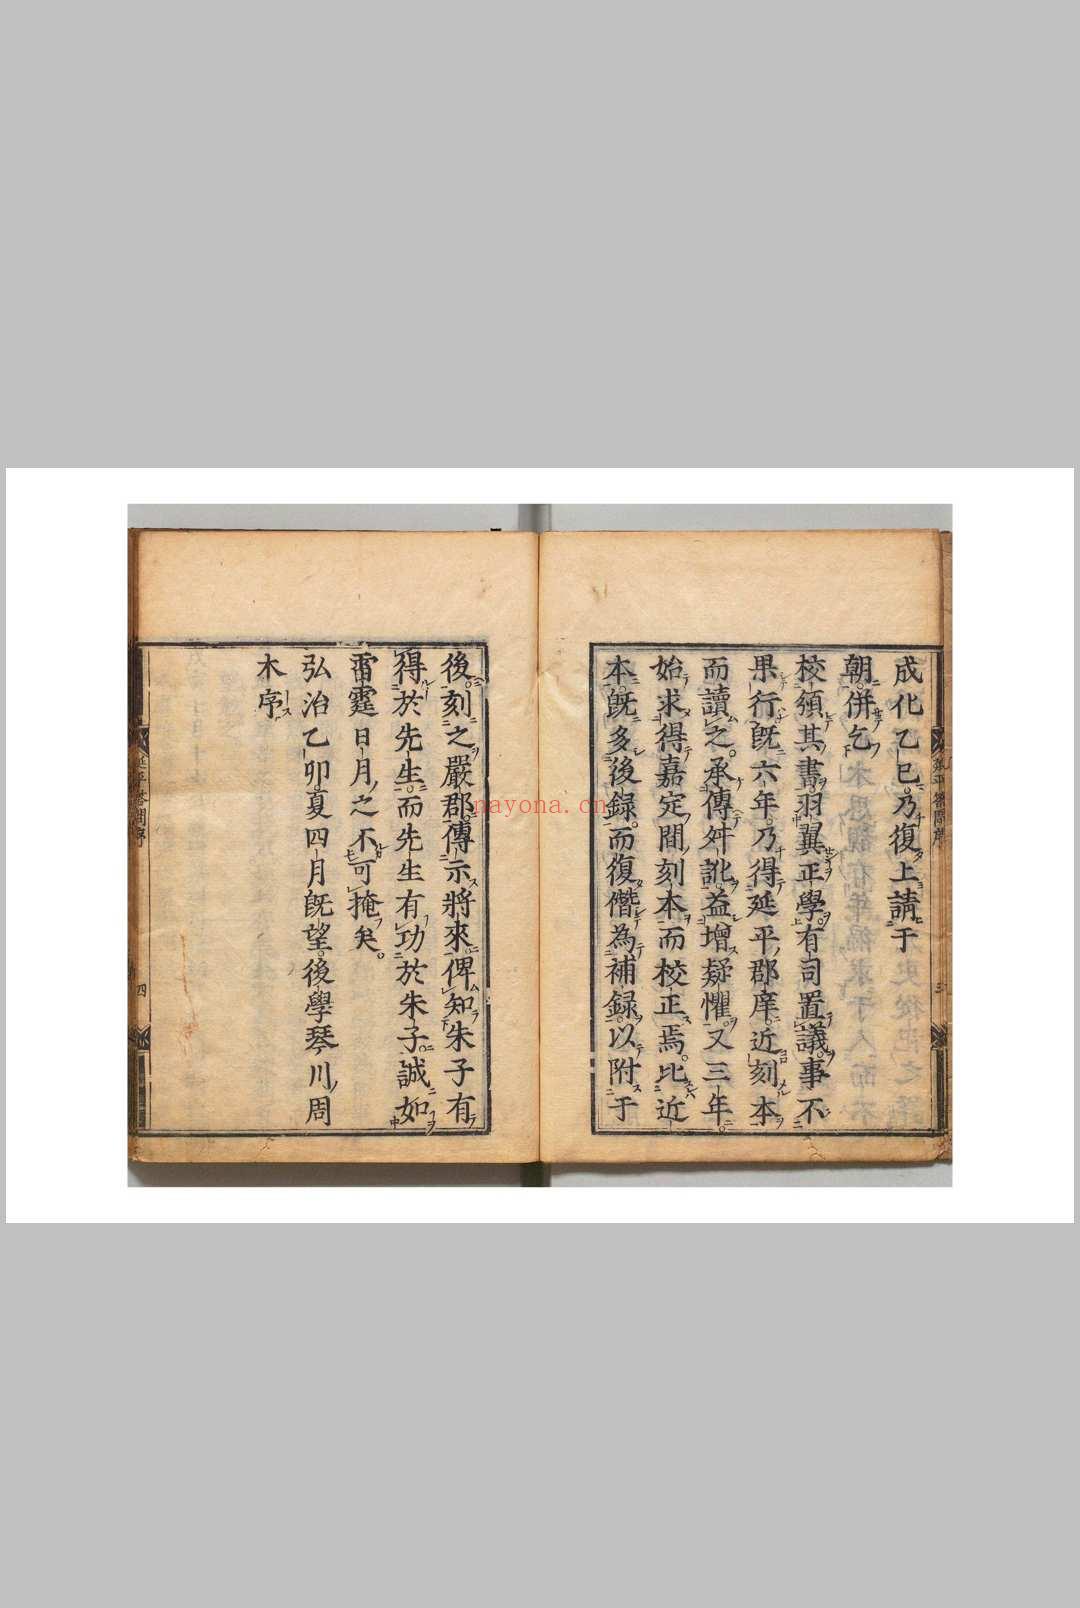 成化乙巳乃復上請于
朝併乞
校頒其書羽翼正學有司置議事不
果行旣六年乃得延平郡庠近刻本
而讀之承傳舛訛益增疑懼又三年
始求得嘉定間刻本而校正焉比近
本旣多後録而復僭為補録以附于
後刻之嚴郡傳示將來俾知朱子有
得於先生而先生有功於朱子誠如
雷霆日月之不可掩矣
弘治乙卯夏四月旣望後學琴川周
木序
延平答問序
三
延平答問序
四
nayona.cn